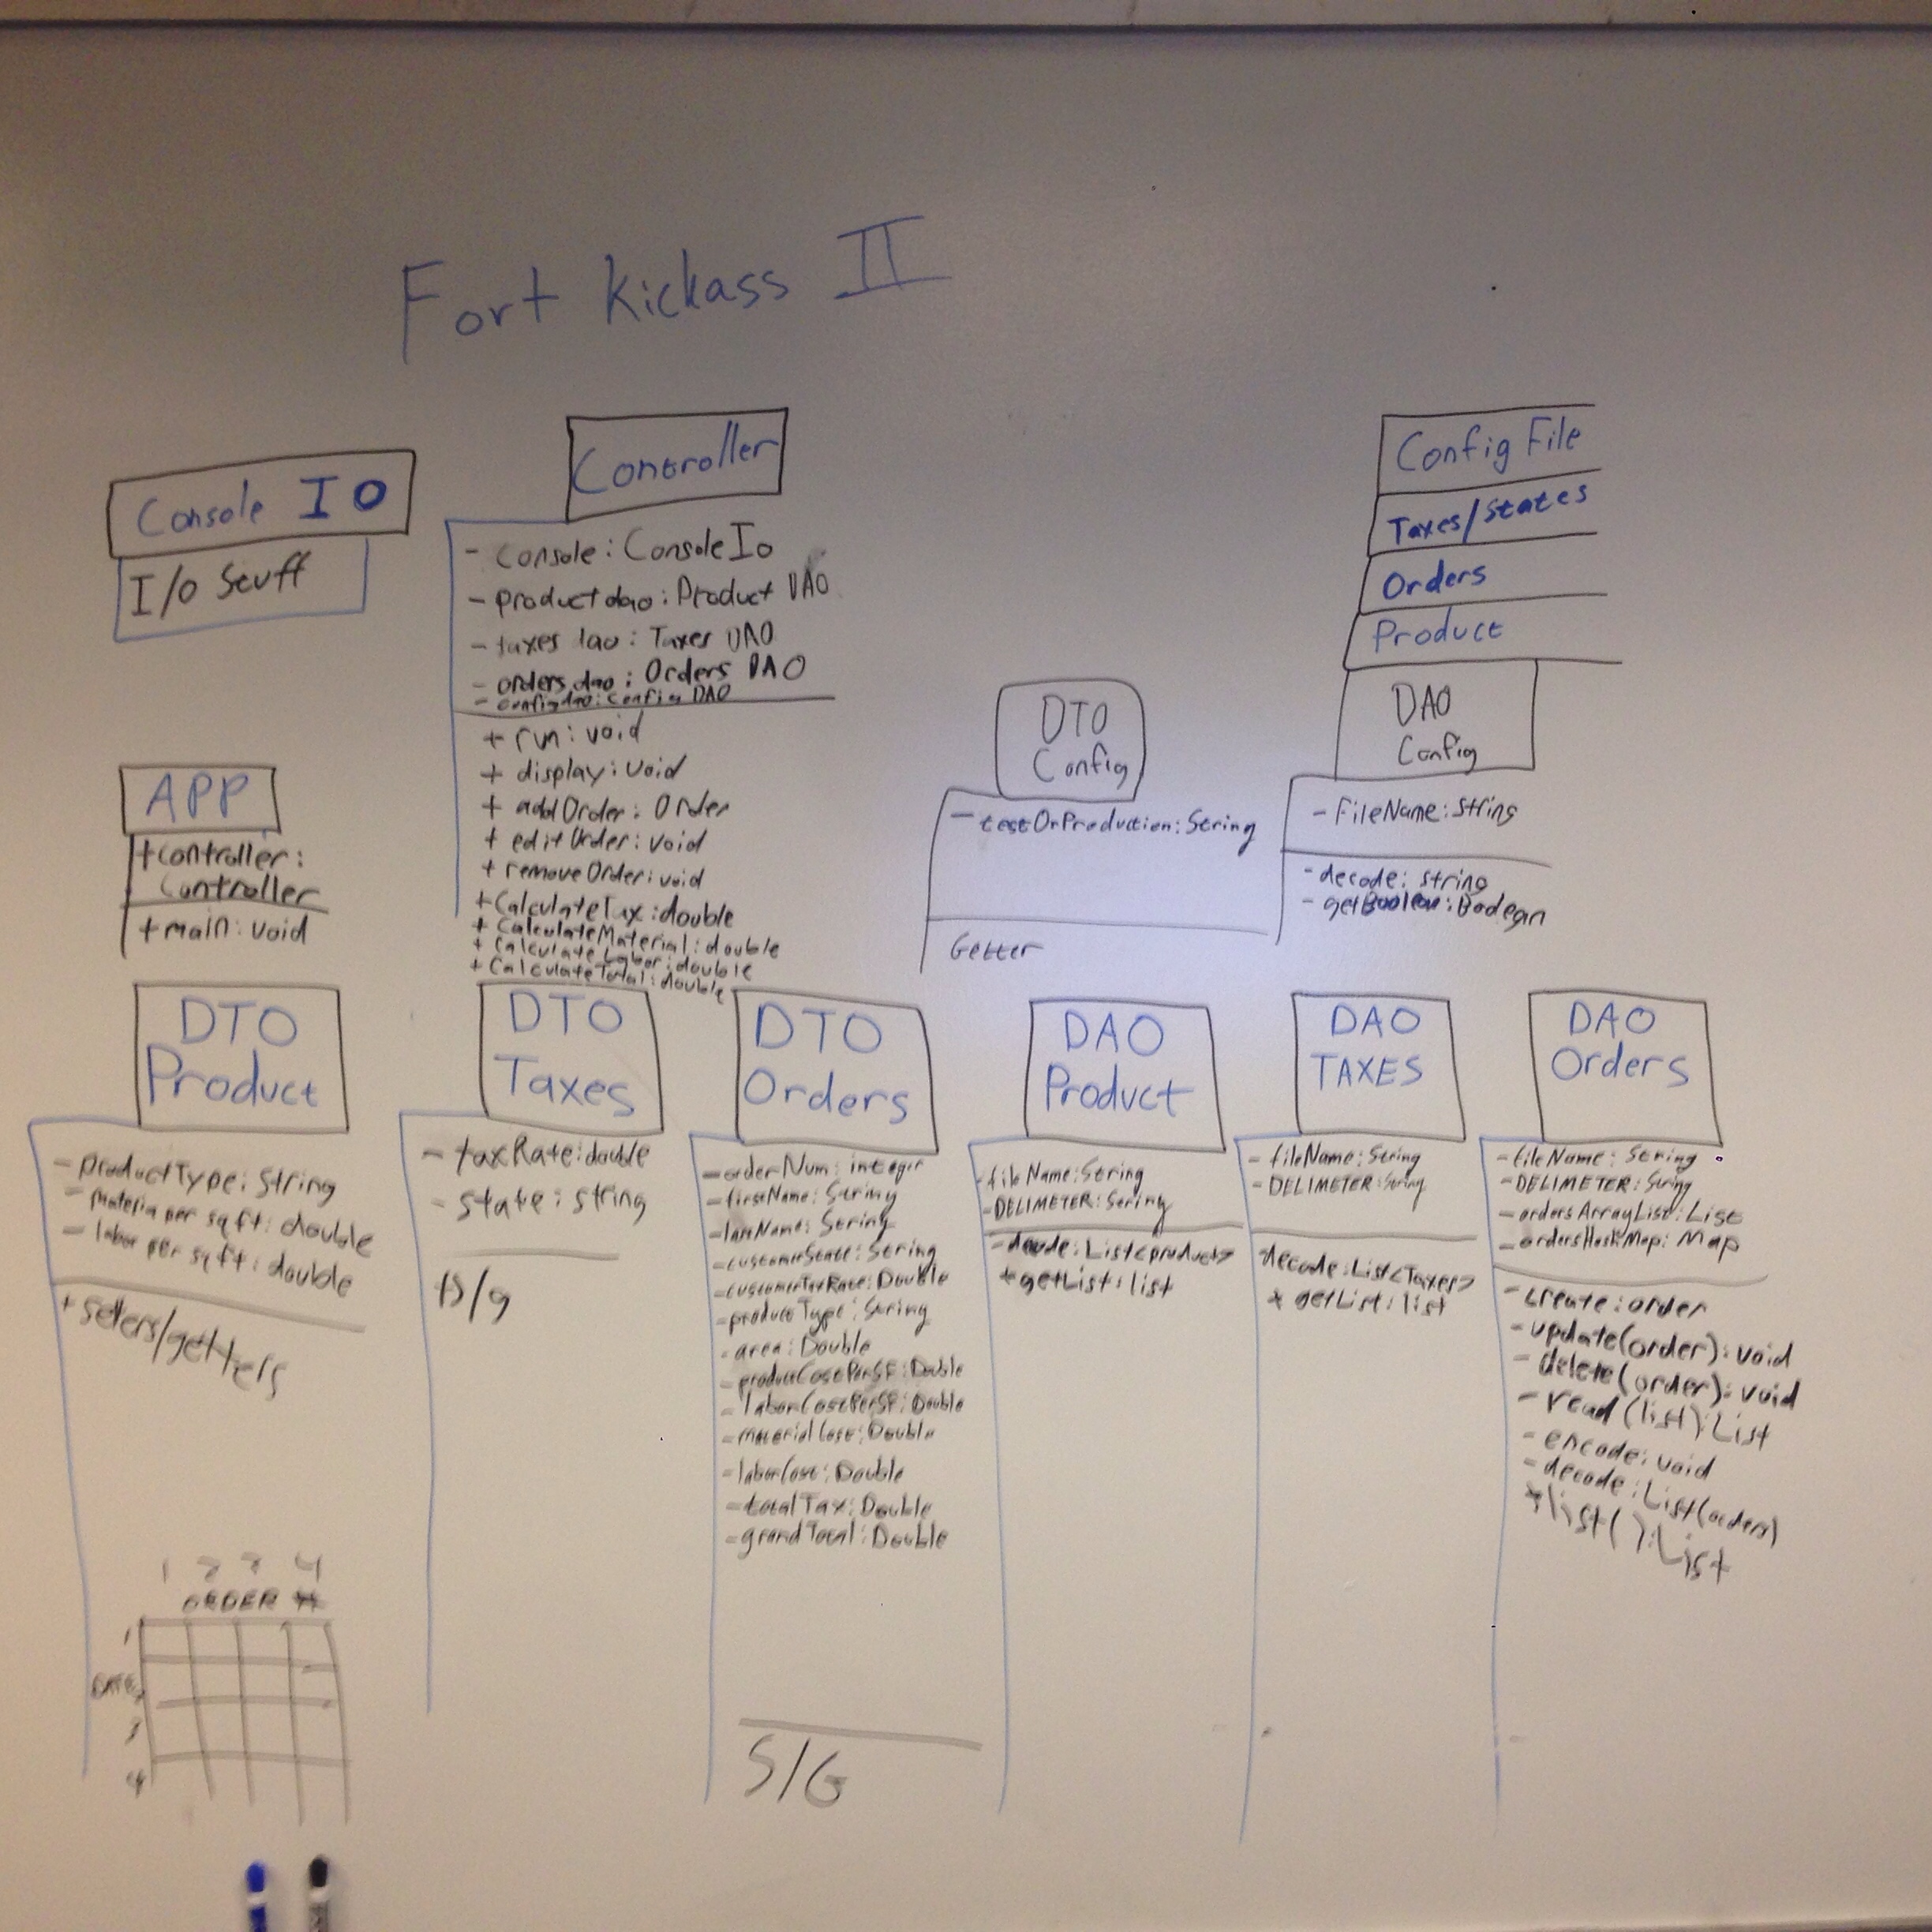 Fort Kickass II
Console IO
I/O Stuff
Controller
- console: ConsoleIo
- productdao: Product DAO
- taxes dao: Taxes DAO
- orders dao: Orders DAO
- configdao: Config DAO
+ run: void
+ display: void
+ addOrder: Order
+ editOrder: void
+ removeOrder: void
+ CalculateTax: double
+ CalculateMaterial: double
+ Calculate Labor: double
+ CalculateTotal: double
Config File
Taxes/States
Orders
Product
DAO
Config
- FileName: String
- decode: string
- getBoolean: Boolean
DTO
Config
- testOrProduction: String
Getter
APP
+controller:
Controller
+main: void
DTO
Product
- productType: String
- material per sqft: double
- labor per sqft: double
+ setters/getters
DTO
Taxes
- taxRate: double
- state: string
/g
DTO
Orders
- orderNum: integer
- firstName: String
- lastName: String
- customerState: String
- customerTaxRate: Double
- productType: String
- area: Double
- productCostPerSF: Double
- laborCostPerSF: Double
- materialCost: Double
- laborCost: Double
- totalTax: Double
- grandTotal: Double
S/G
DAO
Product
- fileName: String
- DELIMETER: String
- decode: List<product>
+ getList: list
DAO
TAXES
- fileName: String
- DELIMETER: String
decode: List<Taxes>
+ getList: list
DAO
Orders
- fileName: String
- DELIMETER: String
- ordersArrayList: List
- ordersHashMap: Map
- create: order
- update(order): void
- delete(order): void
- read(list): List
- encode: void
- decode: List(orders)
+list(): List
1 2 3 4
ORDER #
1
DATE
3
4